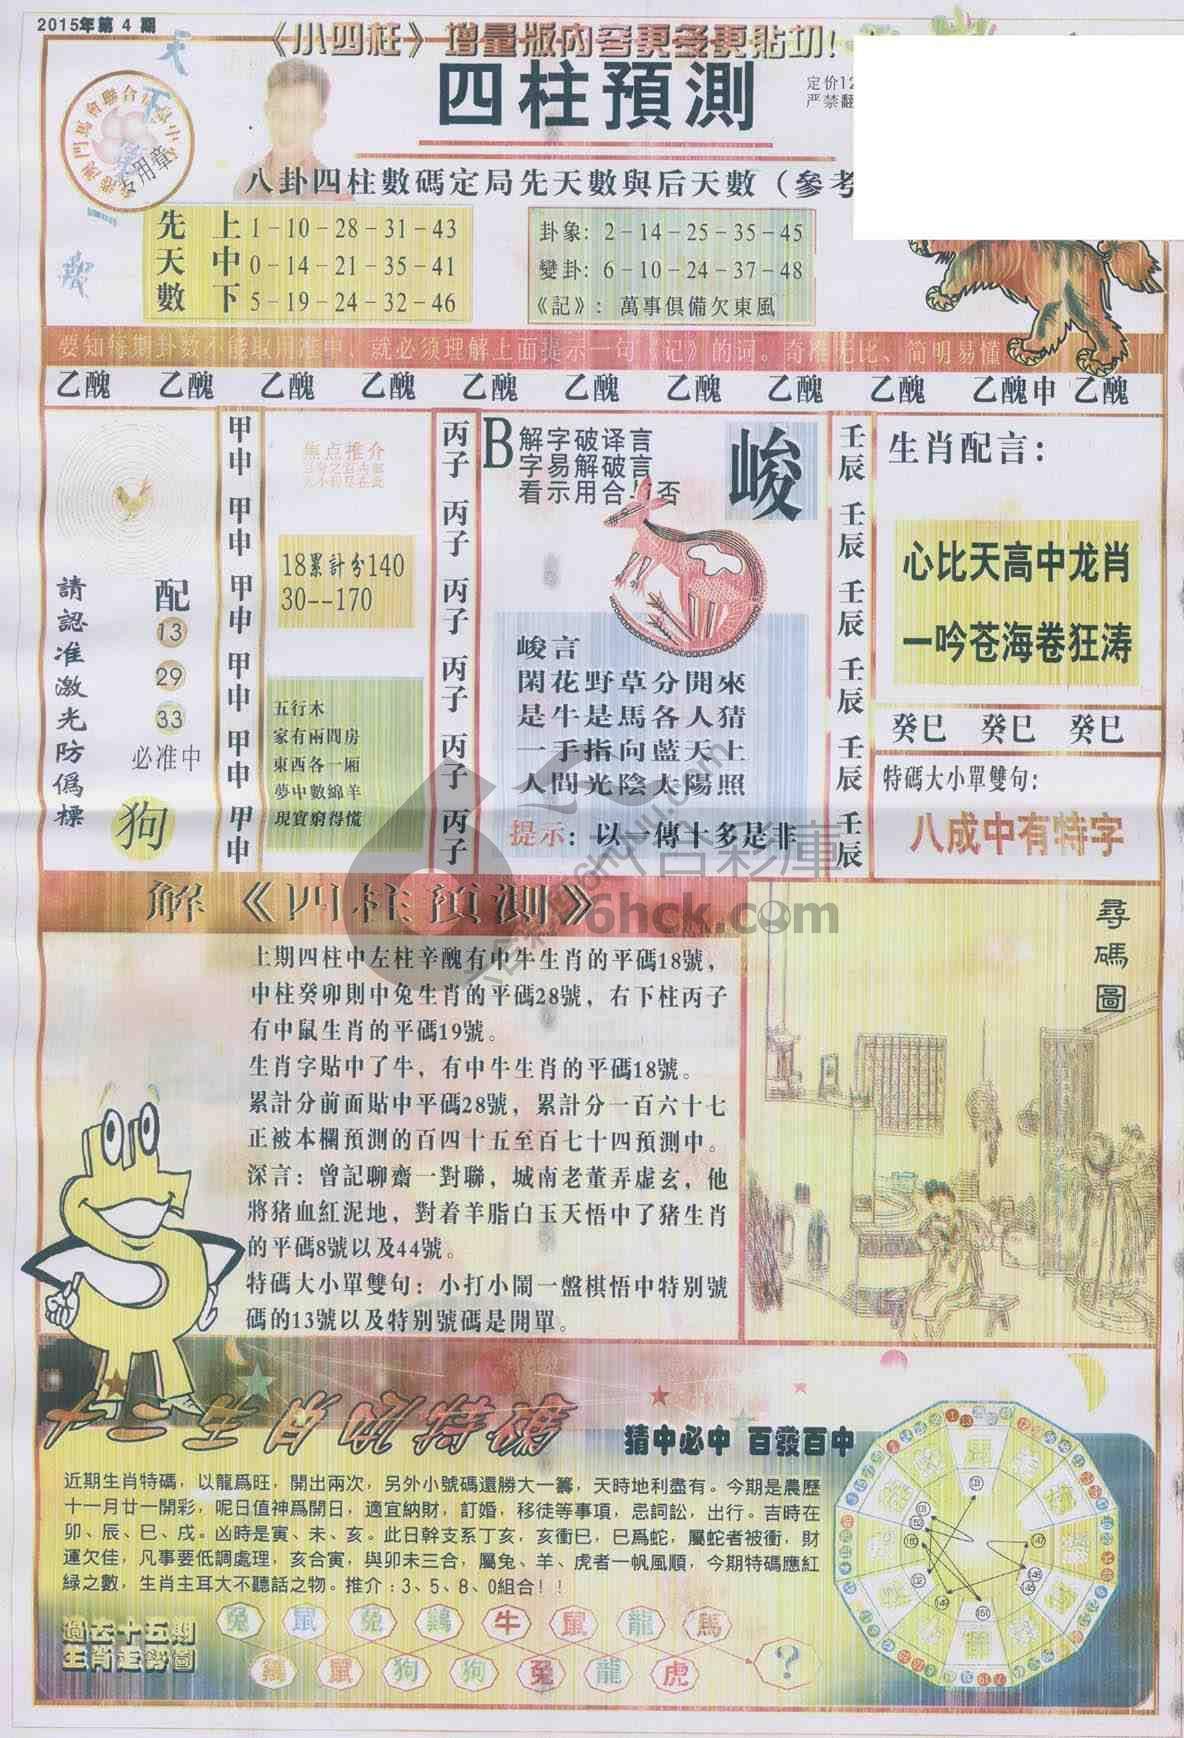 2015年第4期
《小四柱》增量版内容更多更貼切！
四柱預測
定价12
严禁翻
八卦四柱數碼定局先天數與后天數（參考
先天數
上 1-10-28-31-43
中 0-14-21-35-41
下 5-19-24-32-46
卦象: 2-14-25-35-45
變卦: 6-10-24-37-48
《記》: 萬事俱備欠東風
就必须理解上面提示一句《记》的词。奇准无比、简明易懂
乙醜 乙醜 乙醜 乙醜 乙醜 乙醜 乙醜 乙醜 乙醜 乙醜申 乙醜
請認准激光防僞標
配
13
29
33
必准中
狗
甲申 甲申 甲申 甲申 甲申 甲申
焦点推介
18累計分140
30--170
五行木
家有兩間房
東西各一厢
夢中數綿羊
現實窮得慌
丙子 丙子 丙子 丙子 丙子 丙子
B
解字破译言
字易解破言
看示用合与否
峻
峻言
閑花野草分開來
是牛是馬各人猜
一手指向藍天上
人間光陰太陽照
提示: 以一傳十多是非
壬辰 壬辰 壬辰 壬辰 壬辰 壬辰
生肖配言:
心比天高中龙肖
一吟苍海卷狂涛
癸巳 癸巳 癸巳
特碼大小單雙句:
八成中有特字
六合彩庫
6hck.com
解《四柱預測》
上期四柱中左柱辛醜有中牛生肖的平碼18號，
中柱癸卯則中兔生肖的平碼28號，右下柱丙子
有中鼠生肖的平碼19號。
生肖字貼中了牛，有中牛生肖的平碼18號。
累計分前面貼中平碼28號，累計分一百六十七
正被本欄預測的百四十五至百七十四預測中。
深言：曾記聊齋一對聯，城南老董弄虛玄，他
將猪血紅泥地，對着羊脂白玉天悟中了猪生肖
的平碼8號以及44號。
特碼大小單雙句：小打小鬧一盤棋悟中特别號
碼的13號以及特别號碼是開單。
尋碼圖
猜中必中 百發百中
近期生肖特碼，以龍爲旺，開出兩次，另外小號碼還勝大一籌，天時地利盡有。今期是農歷
十一月廿一開彩，呢日值神爲開日，適宜納財，訂婚，移徒等事項，忌詞訟，出行。吉時在
卯、辰、巳、戌。凶時是寅、未、亥。此日幹支系丁亥，亥衝巳，巳爲蛇，屬蛇者被衝，財
運欠佳，凡事要低調處理，亥合寅，與卯未三合，屬兔、羊、虎者一帆風順，今期特碼應紅
緑之數，生肖主耳大不聽話之物。推介：3、5、8、0組合！！
過去十五期
生肖走勢圖
兔 鼠 兔 鷄 牛 鼠 龍 馬
鼠 狗 狗 兔 龍 虎 ?